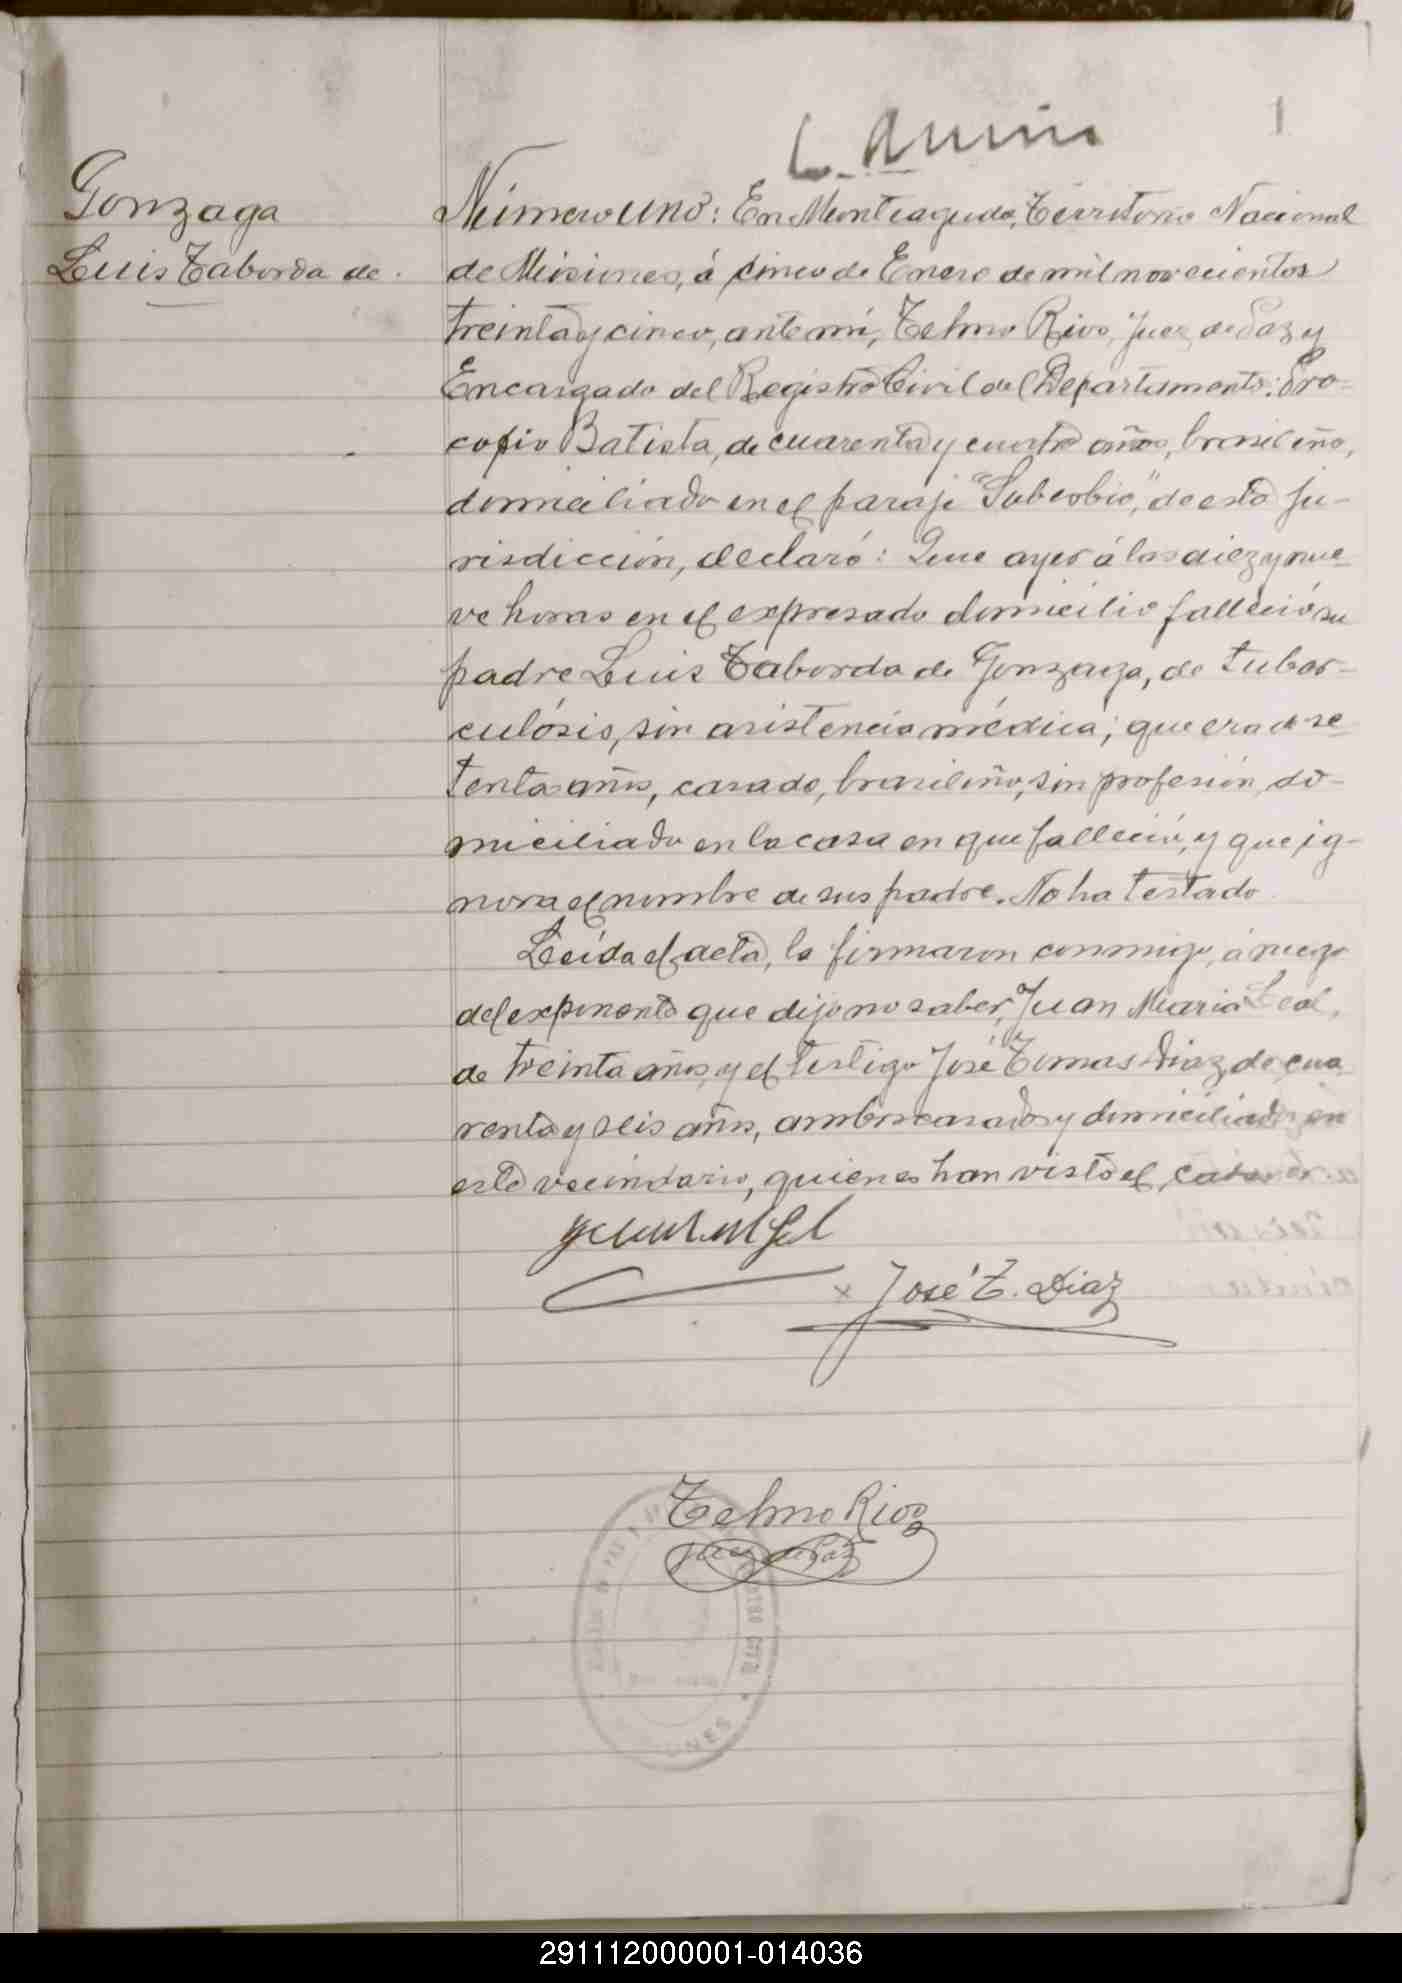 1
Gonzaga
Luis Taborda de.
Número uno: En Monteagudo, Territorio Nacional
de Misiones, á cinco de Enero de mil novecientos
treinta y cinco, ante mí, Telmo Rios, Juez de Paz y
Encargado del Registro Civil del Departamento: Pro-
copio Batista, de cuarenta y cuatro años, brasileño,
domiciliado en el paraje "Subcobio", de esta ju-
risdicción, declaró: Que ayer á las diez y nue-
ve horas en el expresado domicilio falleció su
padre Luis Taborda de Gonzaga, de tuber-
culósis, sin asistencia médica; que era de se
tenta años, casado, brasileño, sin profesión, do-
miciliado en la casa en que falleció, y que ig-
nora el nombre de sus padre. No ha testado.
Leída el acta, la firmaron conmigo, á ruego
del exponente que dijo no saber, Juan Maria Leal,
de treinta años, y el testigo José Tomas Diaz, de cua
renta y seis años, ambos casados y domiciliados en
este vecindario, quienes han visto el cadaver.
x José T. Diaz
Telmo Rios
Juez de Paz
291112000001-014036